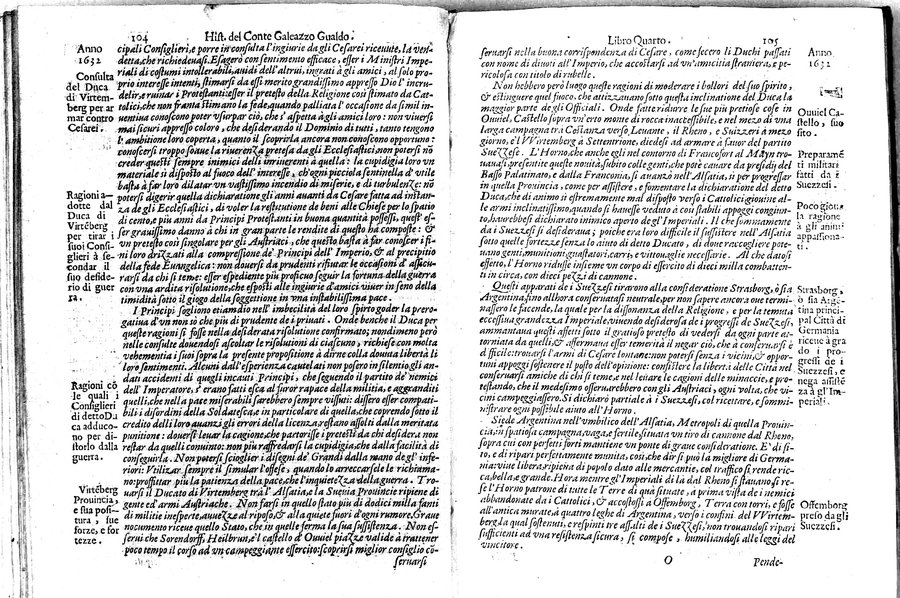 104 Hist. del Conte Galeazzo Gualdo.
Anno
1632
Consulta
del Duca
di Virtem-
berg per ar
mar contro
Cesarei.
Ragioni a-
dotte dal
Duca di
Virtēberg
per tirar i
suoi Consi-
glieri à se-
condar il
suo deside-
rio di guer
ra.
Ragioni cō
le quali i
Consiglieri
di detto Du
ca adduco-
no per di-
storlo dalla
guerra.
Virtēberg
Prouincia,
e sua posi-
tura, sue
forze, e for
tezze.
cipali Consiglieri, e porre in consulta l'ingiurie da gli Cesarei riceuute, la ven-
detta, che richiedeuasi. Esagerò con sentimento efficace, esser i Ministri Impe-
riali di costumi intollerabili, auidi dell'altrui, ingrati à gli amici, al solo pro-
prio interesse intenti, stimarsi da essi merito grandissimo appresso Dio l'incru-
delir, à ruinar i Protestanti: esser il pretesto della Religione così stimato da Cat-
tolici, che non franta stimano la fede, quando palliati l'occasione da simil in-
uentiua conoscono poter vsurpar ciò, che s'aspetta à gli amici loro: non viuersi
mai sicuri appresso coloro, che desiderando il Dominio di tutti, tanto tengono
l'ambitione loro coperta, quanto il scoprirla ancora non conoscono opportuno:
conoscersi troppo soaue la riuerenza pretesa da gli Ecclesiastici, non potersi nō
creder questi sempre inimici delli irriuerenti à quella: la cupidigia loro vn
materiale sì disposto al fuoco dell'interesse, ch'ogni picciola sentinella d'vtile
basta à far loro dilatar vn vastissimo incendio di miserie, e di turbulenze: nō
potersi digerir quella dichiaratione gli anni auanti da Cesare fatta ad instan-
za de gli Ecclesiastici, di voler la restitutione de beni alle Chiese per lo spatio
di cento, e più anni da Principi Protestanti in buona quantità possessi, quest'es-
ser grauissimo danno à chi in gran parte le rendite di questo hà composte: &
vn pretesto così singolare per gli Austriaci, che questo basta à far conoscer i fi-
ni loro drizzati alla compressione de' Principi dell'Imperio, & al precipitio
della fede Euangelica: non douersi da prudenti rifiutar le occasioni d'assicu-
rarsi da chi si teme: esser espediente più proficuo seguir la fortuna della guerra
con vna ardita risolutione, che esposti alle ingiurie d'amici viuer in seno della
timidità sotto il giogo della soggettione in vna instabilissima pace.
I Principi sogliono etiamdio nell'imbecilità del loro spirto goder la prero-
gatiua d'vn non sò che più di prudente de i priuati. Onde benche il Duca per
queste ragioni si fosse nella desiderata risolutione confirmato; nondimeno però
nelle consulte douendosi ascoltar le risolutioni di ciascuno, richiese con molta
vehementia i suoi sopra la presente propositione à dirne colla douuta libertà li
loro sentimenti. Alcuni dall'esperienza cautelati non posero in silentio, gli an-
dati accidenti di quegli incauti Principi, che seguendo il partito de' nemici
dell'Imperatore, s'erano fatti esca al furor rapace della militia, e aggranditi
quelli, che nella pace miserabili sarebbero sempre vissuti: dissero esser compati-
bili i disordini della Soldatesca, e in particolare di quella, che coprendo sotto il
credito delli loro auanzi gli errori della licenza, restano assolti dalla meritata
punitione: douersi leuar la cagione, che partorisse i pretesti da chi desidera non
restar da quelli conuinto: non più raffredarsi la cupidigia, che dalla facilità di
conseguire. Non potersi scieglier i disegni de' Grandi dalla mano degl'infe-
riori: Vtilizar sempre il simular l'offese, quando lo arreccarsele le richiama-
no: proffittar più la patienza della pace, che l'inquietezza della guerra. Tro-
uarsi il Ducato di Virtemberg trà l'Alsatia, e la Sueuia Prouincie ripiene di
gente ed armi Austriache. Non farsi in quello stato più di dodici milla fanti
di militie inesperte, auuezze al riposo, & alla quiete fuori d'ogni rumore. Graue
nocumento riceue quello Stato, che in quelle ferma la sua sussistenza. Non es-
serui che Sorendorff, Heilbrun, e'l castello d'Ouuiel piazze valide à trattener
poco tempo il corso ad vn campeggiante essercito: scoprirsi miglior consiglio cō
seruarsi
Libro Quarto. 105
Anno
1632
Ouuiel Ca-
stello, suo
sito.
Preparamē
ti militari
fatti da i
Suezzesi.
Poco gioua
la ragione
à gli animi
appassiona-
ti.
Strasborg,
ò sia Argē-
tina princi-
pal Città di
Germania
ricerca à gra
do i pro-
gressi de i
Suezzesi, e
nega assistē
za à gl'Im-
periali.
Offemborg
preso da gli
Suezzesi.
seruarsi nella buona corrispondenza di Cesare, come fecero li Duchi passati
con nome di diuoti all'Imperio, che accostarsi ad vn'amicitia straniera, e pe-
ricolosa con titolo di rubelle.
Non hebbero però luogo queste ragioni di moderare i bollori del suo spirito,
& estinguere quel fuoco, che attizzauano sotto questa inclinatione del Duca la
maggior parte degli Officiali. Onde fatte ridurre le sue più pretiose cose in
Ouuiel, Castello sopra vn'erto monte di rocca inaccessibile, e nel mezo di vna
larga campagna trà Costanza verso Leuante, il Rheno, e Suizzeri à mezo
giorno, e'l VVirtemberg à Settentrione, diedesi ad armare à fauor del partito
Suezzese. L'Horno, che anche egli nel contorno di Francofort al Mayn tro-
uauasi, presentite queste nouità subito colle genti, che potè cauare da presidij del
Basso Palatinato, e dalla Franconia, si auanzò nell'Alsatia, sì per progressar
in quella Prouincia, come per assistere, e fomentare la dichiaratione del detto
Duca, che di animo in estremamente mal disposto verso i Cattolici giouine al-
le armi inclinatissimo, quando si hauesse veduto à così stabili appoggi congiun-
to, haurebbesi dichiarato inimico aperto degl'Imperiali. Il che sommamente
da i Suezzesi si desideraua; poiche era loro difficile il sussistere nell'Alsatia
sotto quelle fortezze senza lo aiuto di detto Ducato, di doue raccogliere pote-
uano genti, munitioni, guastatori, carri, e vittouaglie necessarie. Al che datosi
effetto, l'Horno ridusse insieme vn corpo di esercito di dieci milla combatten-
ti in circa, con dieci pezzi di cannone.
Questi apparati de i Suezzesi tirarono alla consideratione Strasborg, ò sia
Argentina, sino allhora conseruatasi neutrale, per non sapere ancora oue termi-
nassero le facende, la quale per la dissonanza della Religione, e per la temuta
eccessiua grandezza Imperiale, viuendo desiderosa de i progressi de Suezzesi,
ammantaua questi assetti sotto il velame di vedersi da ogni parte quasi at-
torniata da quelli, & affermaua esser temerità il negar ciò, che à conseruarsi è
difficile: trouarsi l'armi di Cesare lontane: non potersi senza i vicini, & oppor-
tuni appoggi sostenere il posto dell'opinione: consistere la libertà delle Città nel
conseruarsi amiche di chi si teme, e nel leuare le cagioni delle minaccie, e pro-
testando, che il medesimo osseruarebbero con gli Austriaci, ogni volta, che vi-
cini campeggiassero. Si dichiarò partiale à i Suezzesi, col ricettare, e sommi-
nistrare ogni possibile aiuto all'Horno.
Siede Argentina nell'vmbilico dell'Alsatia, Metropoli di questa Prouin-
cia, in spatiosa campagna, vaga, e fertile, situata vn tiro di cannone dal Rheno,
sopra cui con perfetti forti mantiene vn ponte di graue consideratione. E' di si-
to, e di ripari perfettamente munita, così, che dir si può la migliore di Germa-
nia: viue libera, ripiena di popolo dato alle mercantie, col traffico si rende ric-
ca, bella, e grande. Hora mentre gl'Imperiali di là dal Rheno si stauano, si re-
se l'Horno patrone di tutte le Terre di quà situate, à prima vista de i nemici
abbandonate da i Cattolici, & accostosi à Offemborg, Terra con torri, e fosse
all'antica murate, à quattro leghe di Argentina, verso i confini del VVirtem-
berg, la qual sostenuti, e respinti tre assalti de i Suezzesi, non trouandosi ripari
sufficienti ad vna resistenza sicura, si compose, humiliandosi alle leggi del
vincitore.
O Pende-